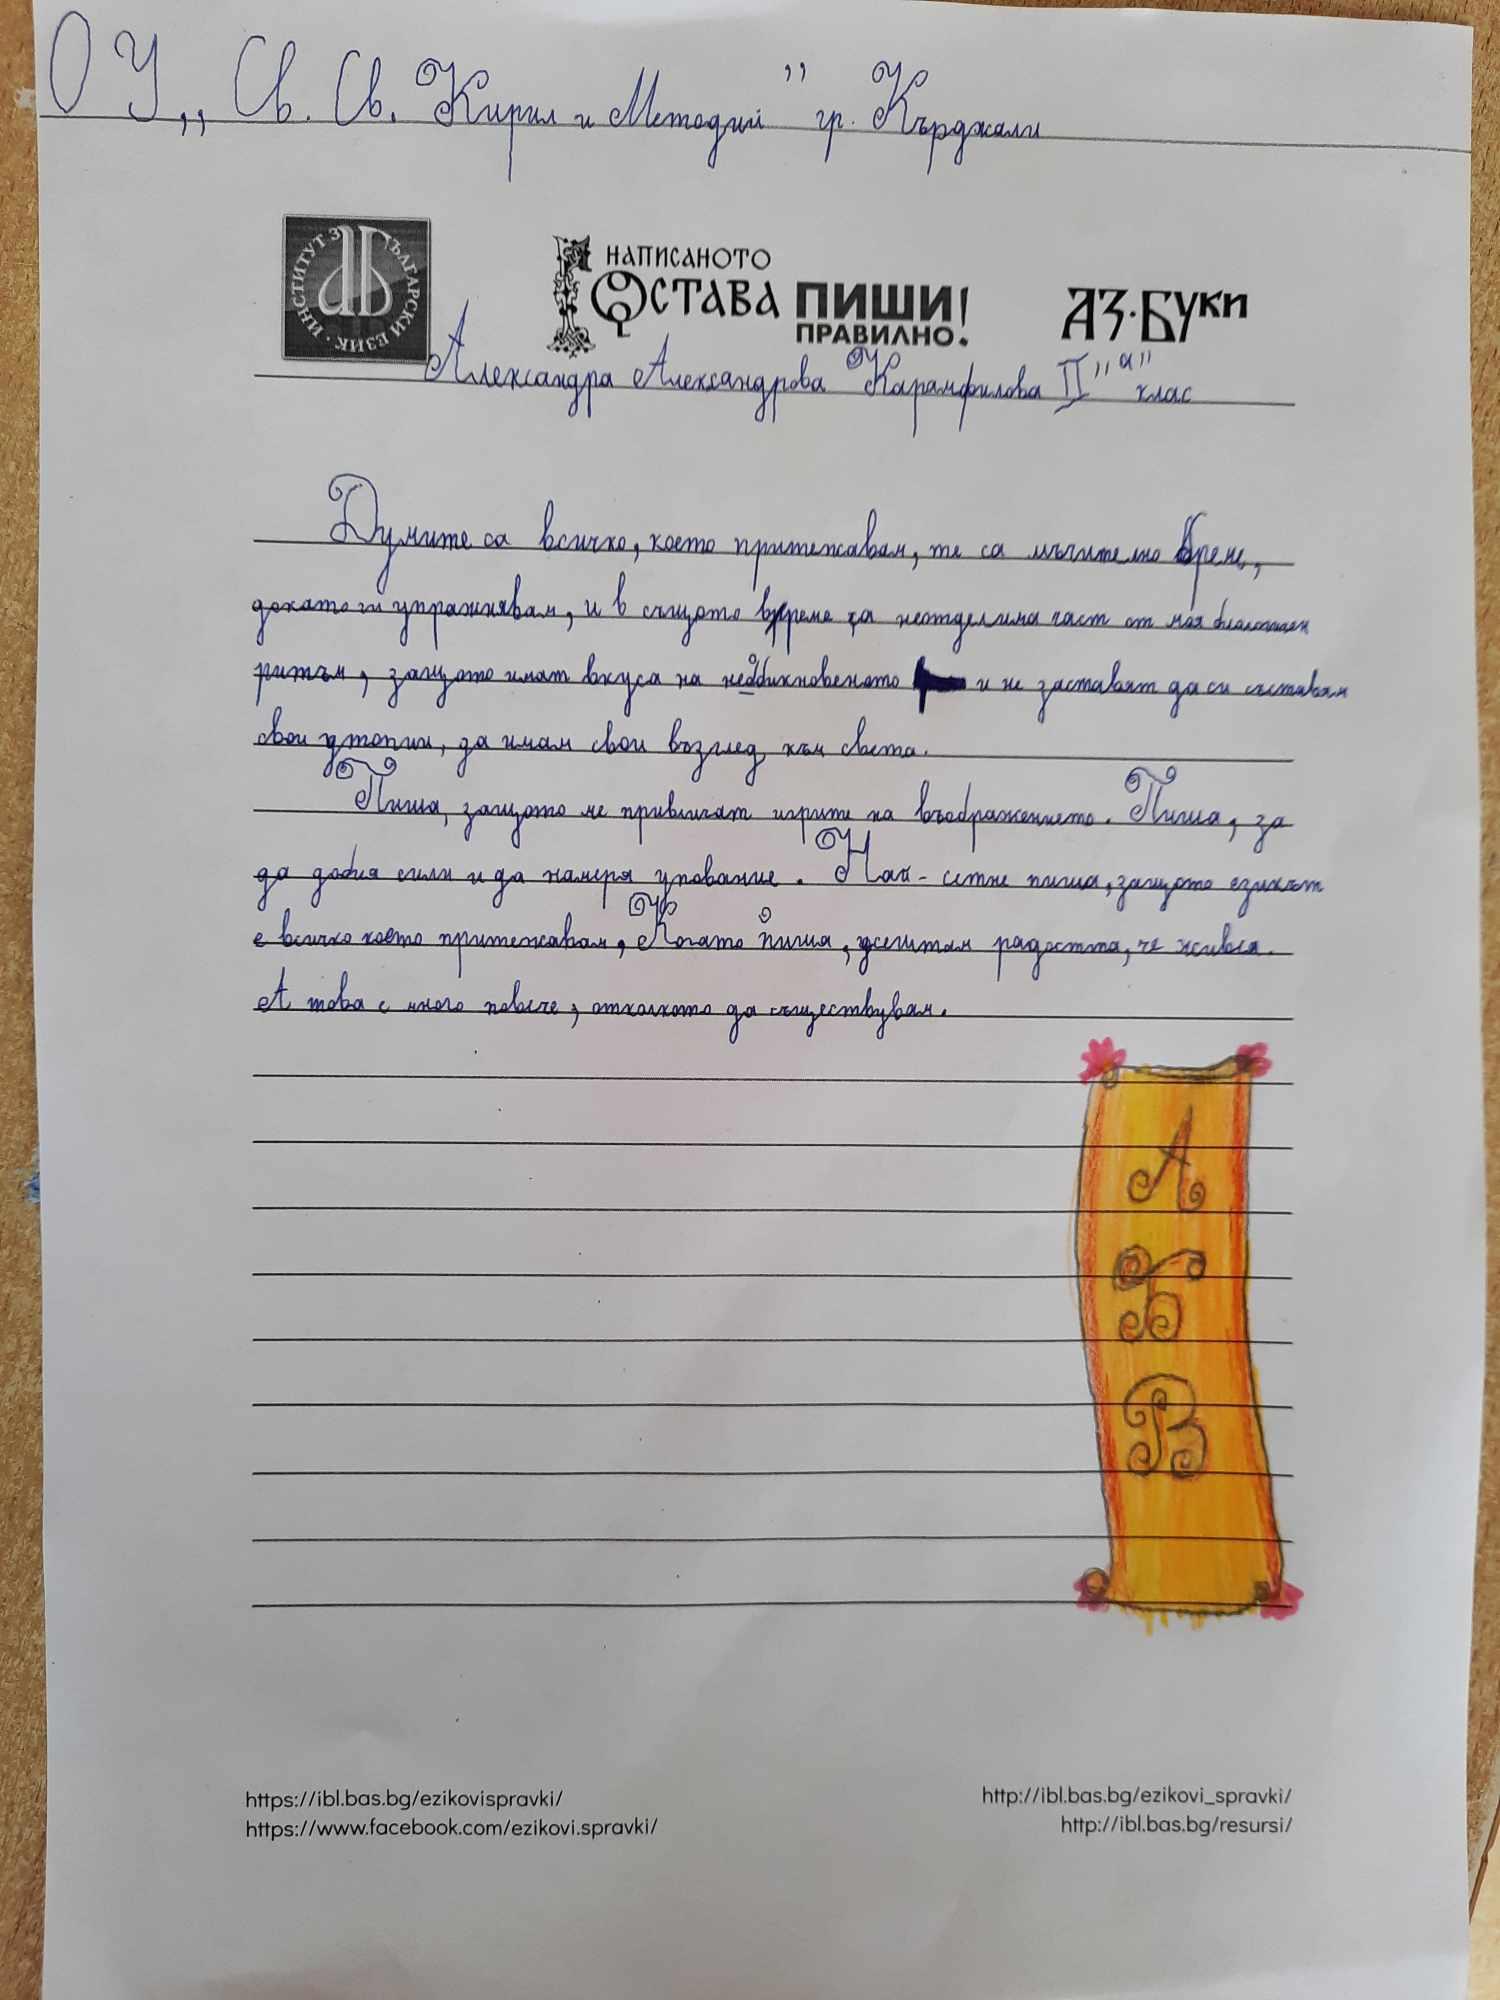 ОУ ,, Св. Св. Кирил и Методий" гр. Кърджали
ИНСТИТУТ ЗА БЪЛГАРСКИ ЕЗИК
НАПИСАНОТО
ОСТАВА
ПИШИ
ПРАВИЛНО!
АЗ·БУКИ
Александра Александрова Карамфилова II "а" клас
Думите са всичко, което притежавам, те са мъчително бреме,
докато ги упражнявам, и в същото време са неотделима част от моя биологичен
ритъм, защото имат вкуса на необикновеното и не заставят да си съставям
свои утопии, да имам свои възглед към света.
Пиша, защото ме привличат игрите на въображението. Пиша, за
да добия сили и да намеря упование. Най-сетне пиша, защото езикът
е всичко което притежавам, Когато пиша, усещам радостта, че живея.
А това е много повече, отколкото да съществувам.
А
Б
В
https://ibl.bas.bg/ezikovispravki/
https://www.facebook.com/ezikovi.spravki/
http://ibl.bas.bg/ezikovi_spravki/
http://ibl.bas.bg/resursi/